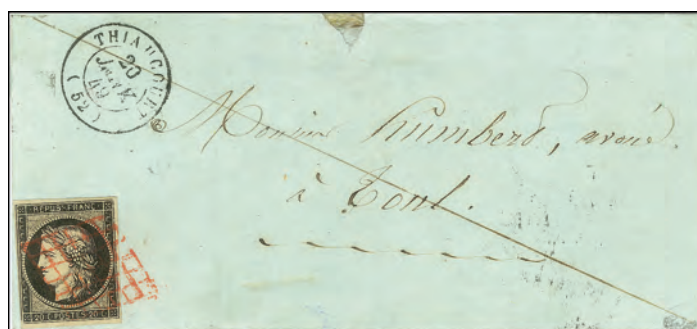 THIAUCOURT
20
JANV.
49
(52)
Monsieur Humbert, avoué.
à Toul.
REPUB. FRANC.
20 C. POSTES. 20 C.